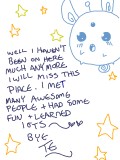 WELL I HAVEN'T
BEEN ON HERE
MUCH ANYMORE
I WILL MISS THIS
PLACE. I MET
MANY AWESOME
PEOPLE + HAD SOME
FUN + LEARNED
LOTS
BYE
TE